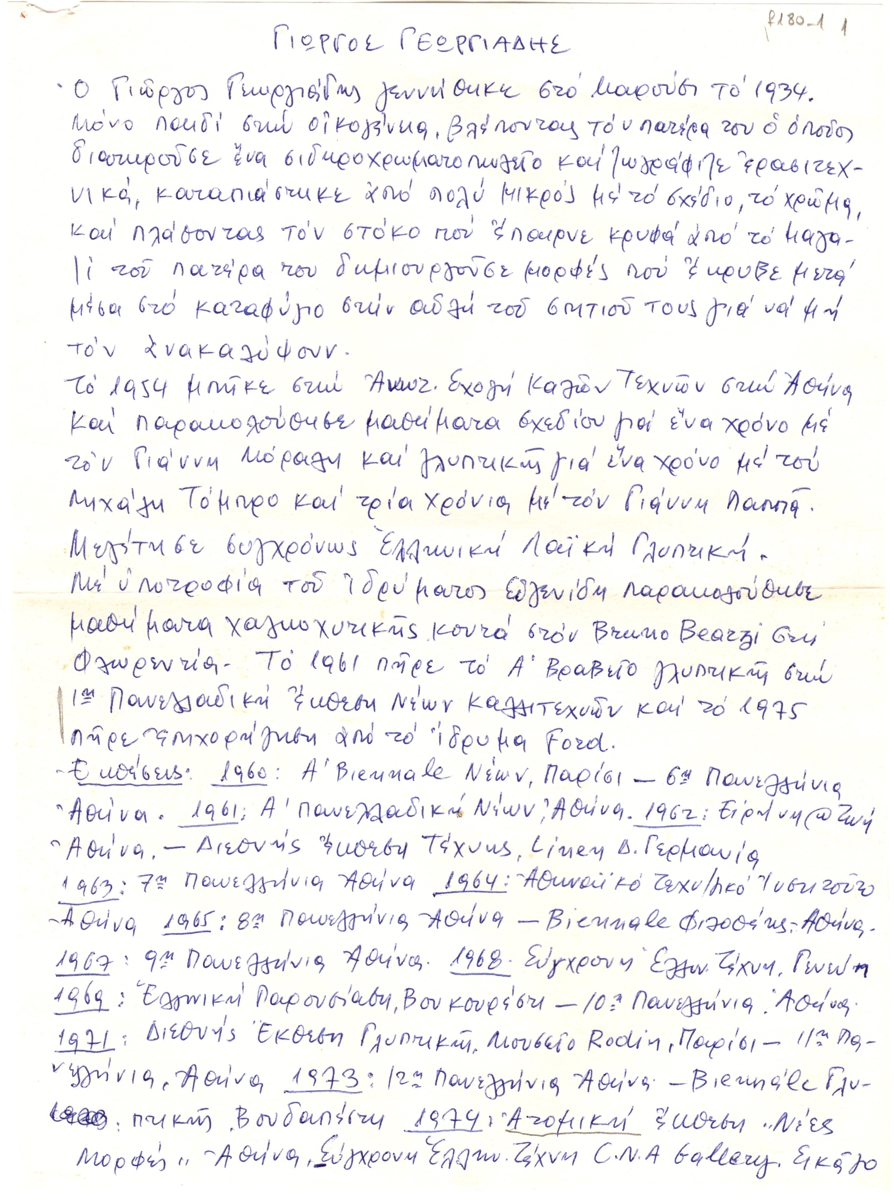 φ180-1 1
ΓΙΩΡΓΟΣ ΓΕΩΡΓΙΑΔΗΣ
Ὁ Γιῶργος Γεωργιάδης γεννήθηκε στό Μαρούσι τό 1934.
Μόνο παιδί στήν οἰκογένεια, βλέποντας τόν πατέρα του ὁ ὁποῖος
διατηροῦσε ἕνα σιδηροχρωματοπωλεῖο καί ζωγράφιζε ἐρασιτεχ-
νικά, καταπιάστηκε ἀπό πολύ μικρός μέ τό σχέδιο, τό χρῶμα,
καί πλάσοντας τόν στόκο πού ἔπαιρνε κρυφά ἀπό τό μαγα-
ζί τοῦ πατέρα του δημιουργοῦσε μορφές πού ἔκρυβε μετά
μέσα στό καταφύγιο στήν αὐλή τοῦ σπητιοῦ τους γιά νά μή
τόν ἀνακαλύψουν.
Τό 1954 μπῆκε στήν Ἀνωτ. Σχολή Καλῶν Τεχνῶν στήν Ἀθήνα
καί παρακολούθησε μαθήματα σχεδίου γιά ἕνα χρόνο μέ
τόν Γιάννη Μόραλη καί γλυπτικῆς γιά ἕνα χρόνο μέ τόν
Μιχάλη Τόμπρο καί τρία χρόνια μέ τόν Γιάννη Παππᾶ.
Μελέτησε συγχρόνως Ἑλληνική Λαϊκή Γλυπτική.
Μέ ὑποτροφία τοῦ ἱδρύματος Εὐγενίδη παρακολούθησε
μαθήματα χαλκοχυτικῆς κοντά στόν Bruno Bearzi στή
Φλωρεντία. Τό 1961 πῆρε τό Α' Βραβεῖο γλυπτικῆς στήν
1η Πανελλαδική Ἔκθεση Νέων Καλλιτεχνῶν καί τό 1975
πῆρε ἐπιχορήγηση ἀπό τό ἵδρυμα Ford.
Ἐκθέσεις: 1960: Α' Biennale Νέων, Παρίσι — 6η Πανελλήνια
Ἀθήνα. 1961: Α' Πανελλαδική Νέων, Ἀθήνα. 1962: Εἰρήνη @ Ζωή
Ἀθήνα, — Διεθνής Ἔκθεση Τέχνης, Δ. Γερμανία
1963: 7η Πανελλήνια Ἀθήνα 1964: Ἀθηναϊκό Τεχν/κό Ἰνστιτοῦτο
Ἀθήνα 1965: 8η Πανελλήνια Ἀθήνα — Biennale Φιλοθέης. Ἀθήνα.
1967: 9η Πανελλήνια Ἀθήνα. 1968. Σύγχρονη Ἑλλην. Τέχνη, Γενεύη
1969: Ἑλληνική Παρουσίαση, Βουκουρέστι — 10η Πανελλήνια, Ἀθήνα.
1971: Διεθνής Ἔκθεση Γλυπτικῆς, Μουσεῖο Rodin, Παρίσι — 11η Πα-
νελλήνια, Ἀθήνα 1973: 12η Πανελλήνια Ἀθήνα — Biennale Γλυ-
πτικῆς Βουδαπέστη 1974: Ἀτομική ἔκθεση "Νέες
Μορφές" Ἀθήνα, Σύγχρονη Ἑλλην. Τέχνη C.N.A Gallery. Σικάγο